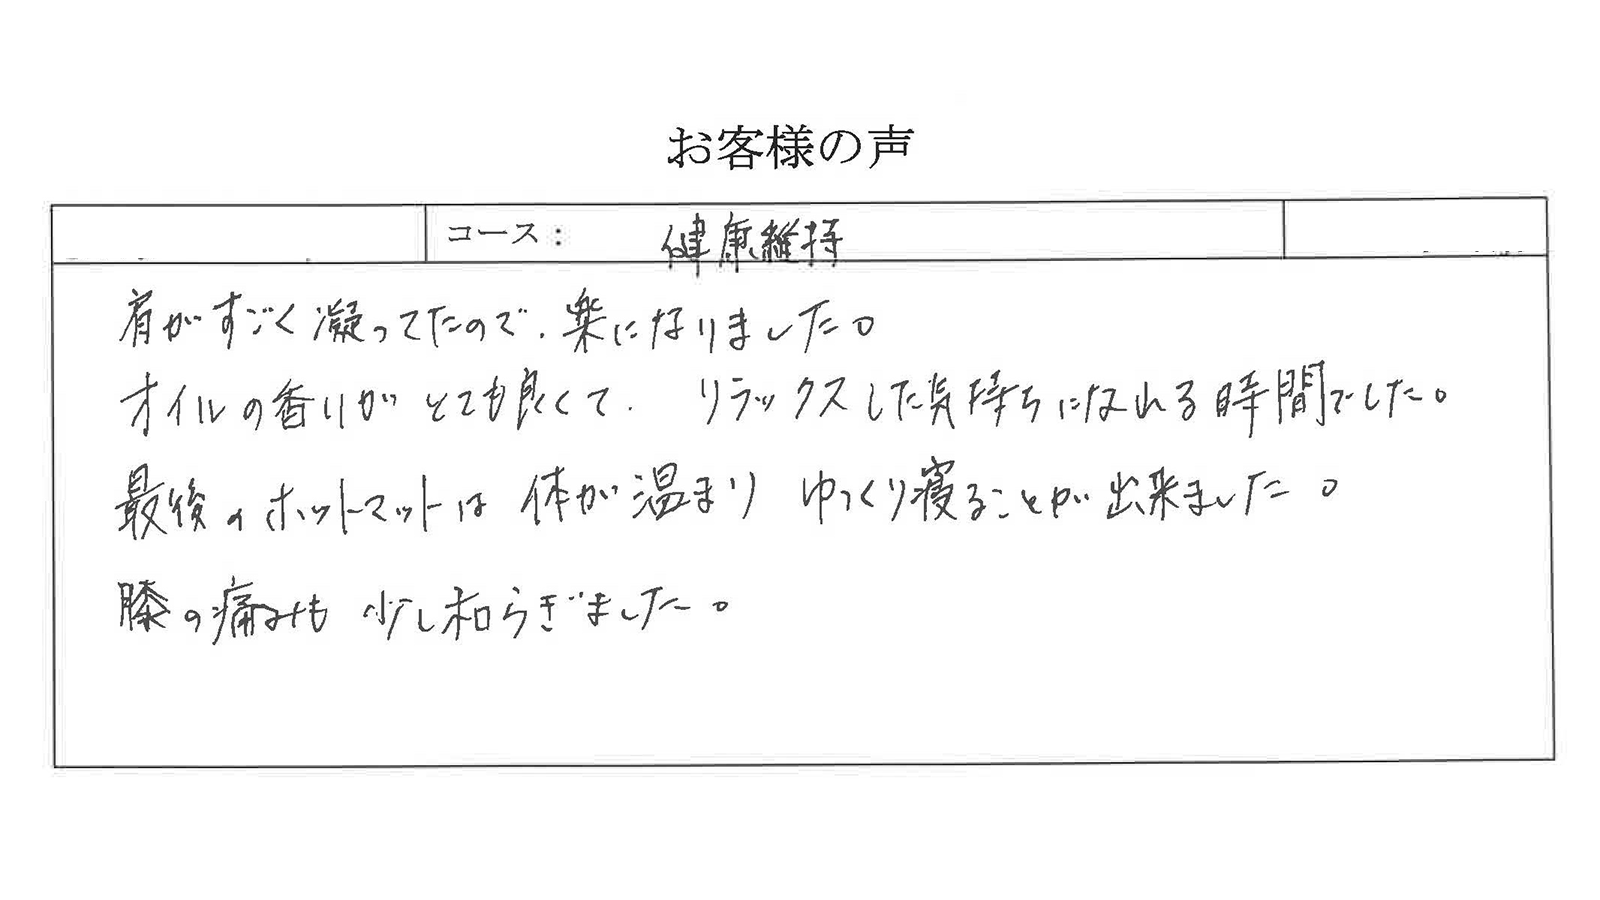 お客様の声
コース： 健康維持
肩がすごく凝ってたので、楽になりました。
オイルの香りがとても良くて、リラックスした気持ちになれる時間でした。
最後のホットマットは体が温まりゆっくり寝ることが出来ました。
膝の痛みも少し和らぎました。